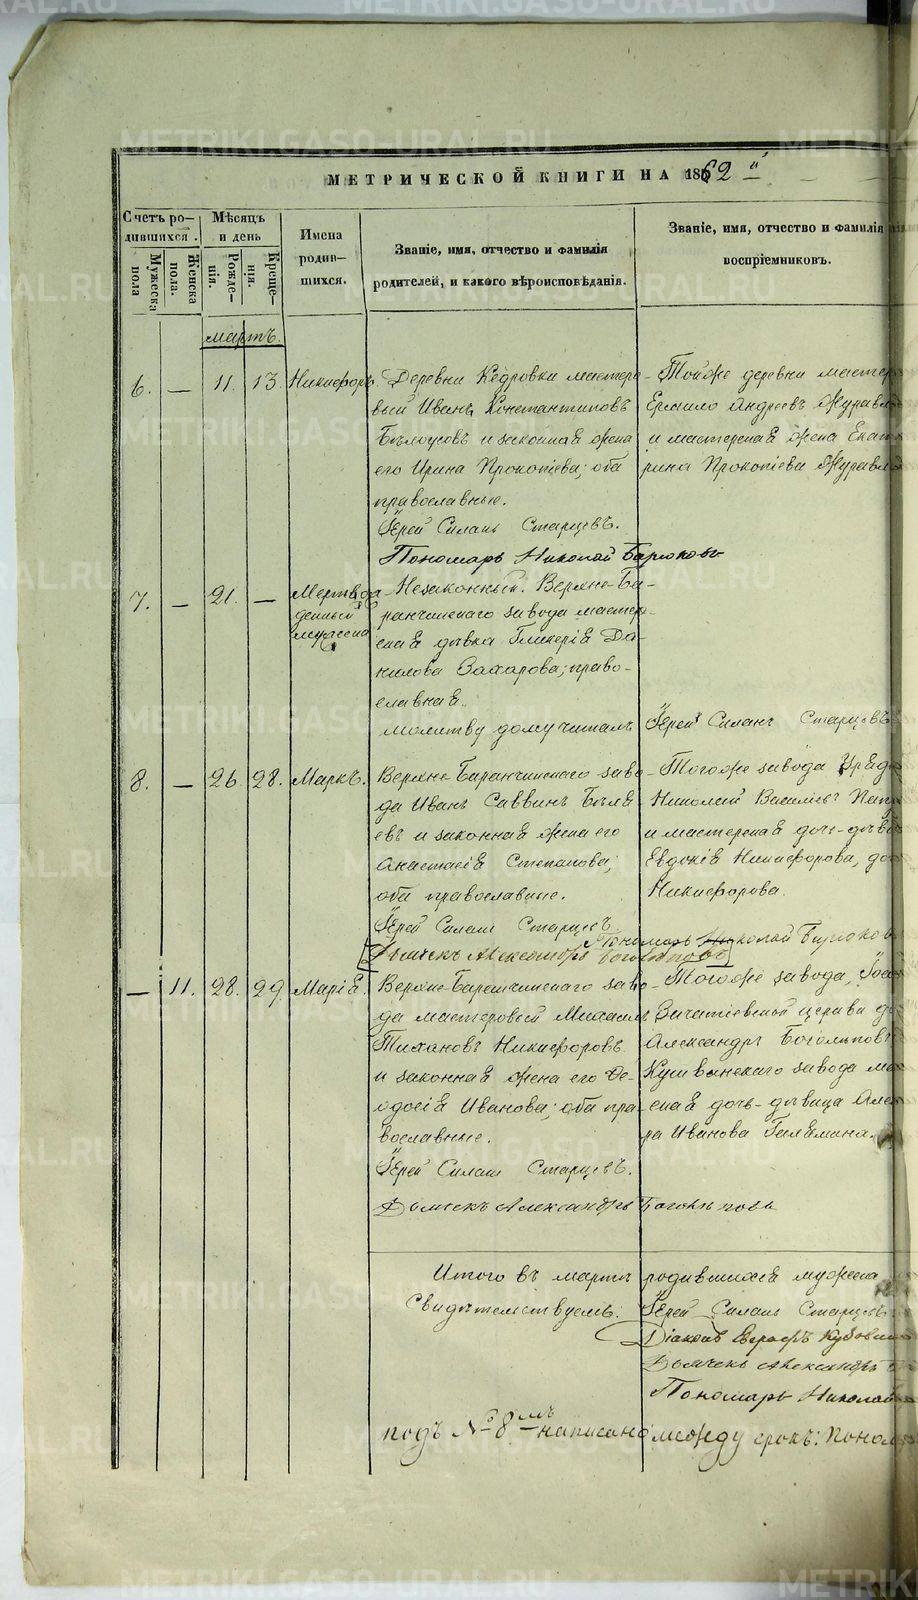 МЕТРИЧЕСКОЙ КНИГИ НА 1862й
Счетъ ро-
дившихся.
Мужеска
пола
Женска
пола.
Мѣсяцъ
и день
Рожде-
нія.
Креще-
нія.
Имена
родив-
шихся.
Званіе, имя, отчество и фамилія
родителей, и какого вѣроисповѣданія.
Званіе, имя, отчество и фамилія
воспріемниковъ.
мартъ.
6. — 11. 13. Никифоръ.
Деревни Кедровки мастеро-
вый Иванъ Константиновъ
Бѣлоусовъ и законная жена
его Ирина Прокопіева; оба
православные.
Іерей Силанъ Старцевъ.
Пономарь Николай
Тойже деревни мастер
Ермило Андреевъ Журавл
и мастерская жена Екате
рина Прокопіева Журавл
7. — 21. —
Мертворо
денный
мужеска
Незаконный. Верхно-Ба-
ранчинскаго завода мастер-
ская дѣвка Гликерія Да-
нилова Захарова; право-
славная.
молитву дому читалъ Іерей Силанъ Старцевъ
8. — 26. 28. Маркъ.
Верхно-Баранчинскаго заво-
да Иванъ Саввинъ Бѣля
евъ и законная жена его
Анастасія Степанова;
оба православные.
Іерей Силанъ Старцевъ
Пономарь Николай
Дьячекъ Александръ Боголѣповъ
Тогоже завода Уряд
Николай Василіев
и мастерская дочь-дѣв
Евдокія Никифорова, до
Никифорова.
— 11. 28. 29. Марія.
Верхно-Баранчинскаго заво-
да мастеровый Михаилъ
Тихановъ Никифоровъ
и законная жена его Ѳе-
одосія Иванова; оба пра-
вославные.
Іерей Силанъ Старцевъ.
Дьячекъ Александръ Боголѣповъ
Тогоже завода, Іоан
Зачатіевской церкви д
Александръ Боголѣповъ
Кушвинскаго завода ма
ская дочь-дѣвица Алек
ра Иванова Гилямина.
Итого въ мартѣ родившихся мужеска
Свидѣтельствуемъ: Іерей Силанъ Старцевъ
Діаконъ
Дьячекъ Александръ
Пономарь Николай
подъ № 8мъ написано между срокъ: Поном
METRIKI.GASO-URAL.RU